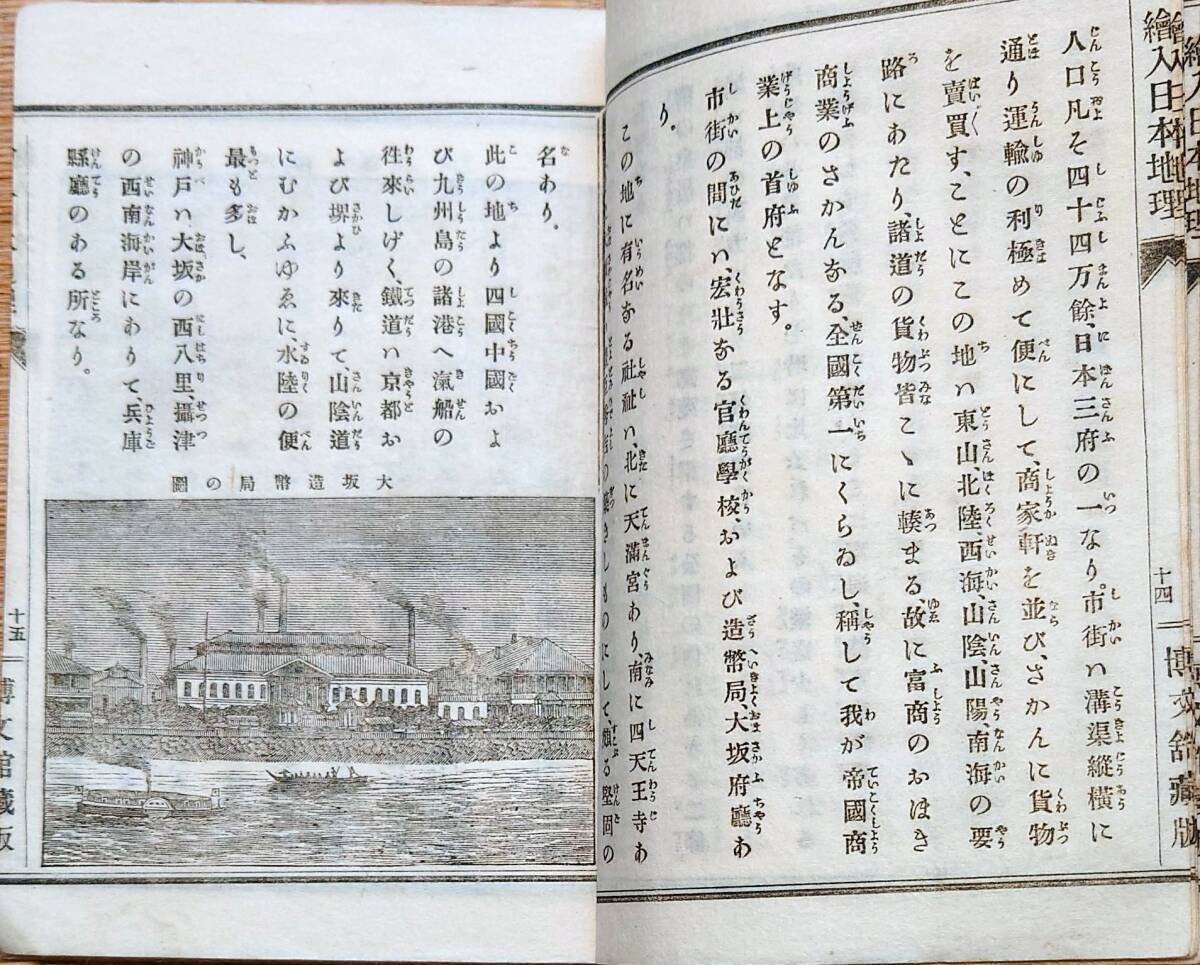 繪入日本地理
人口凡そ四十四万餘、日本三府の一なり。市街ハ溝渠縱橫に
通り運輸の利極めて便にして、商家軒を並び、さかんに貨物
を賣買す、ことにこの地ハ東山、北陸、西海、山陰、山陽、南海の要
路にあたり、諸道の貨物皆こゝに輳まる、故に富商のおほき
商業のさかんなる、全國第一にくらゐし、稱して我が帝國商
業上の首府となす。
市街の間にハ、宏壯なる官廳學校、および造幣局、大坂府廳あ
り。
この地に有名なる社祉ハ、北に天滿宮あり、南に四天王寺あ
きしものにして、頗る堅固の
十四
博文舘藏版
名あり。
此の地より四國中國およ
び九州島の諸港へ滊船の
徃來しげく、鐵道ハ京都お
よび堺より來りて、山陰道
にむかふゆゑに、水陸の便
最も多し、
神戸ハ大坂の西八里、攝津
の西南海岸にありて、兵庫
縣廳のある所なり。
大坂造幣局の圖
十五
博文館藏版